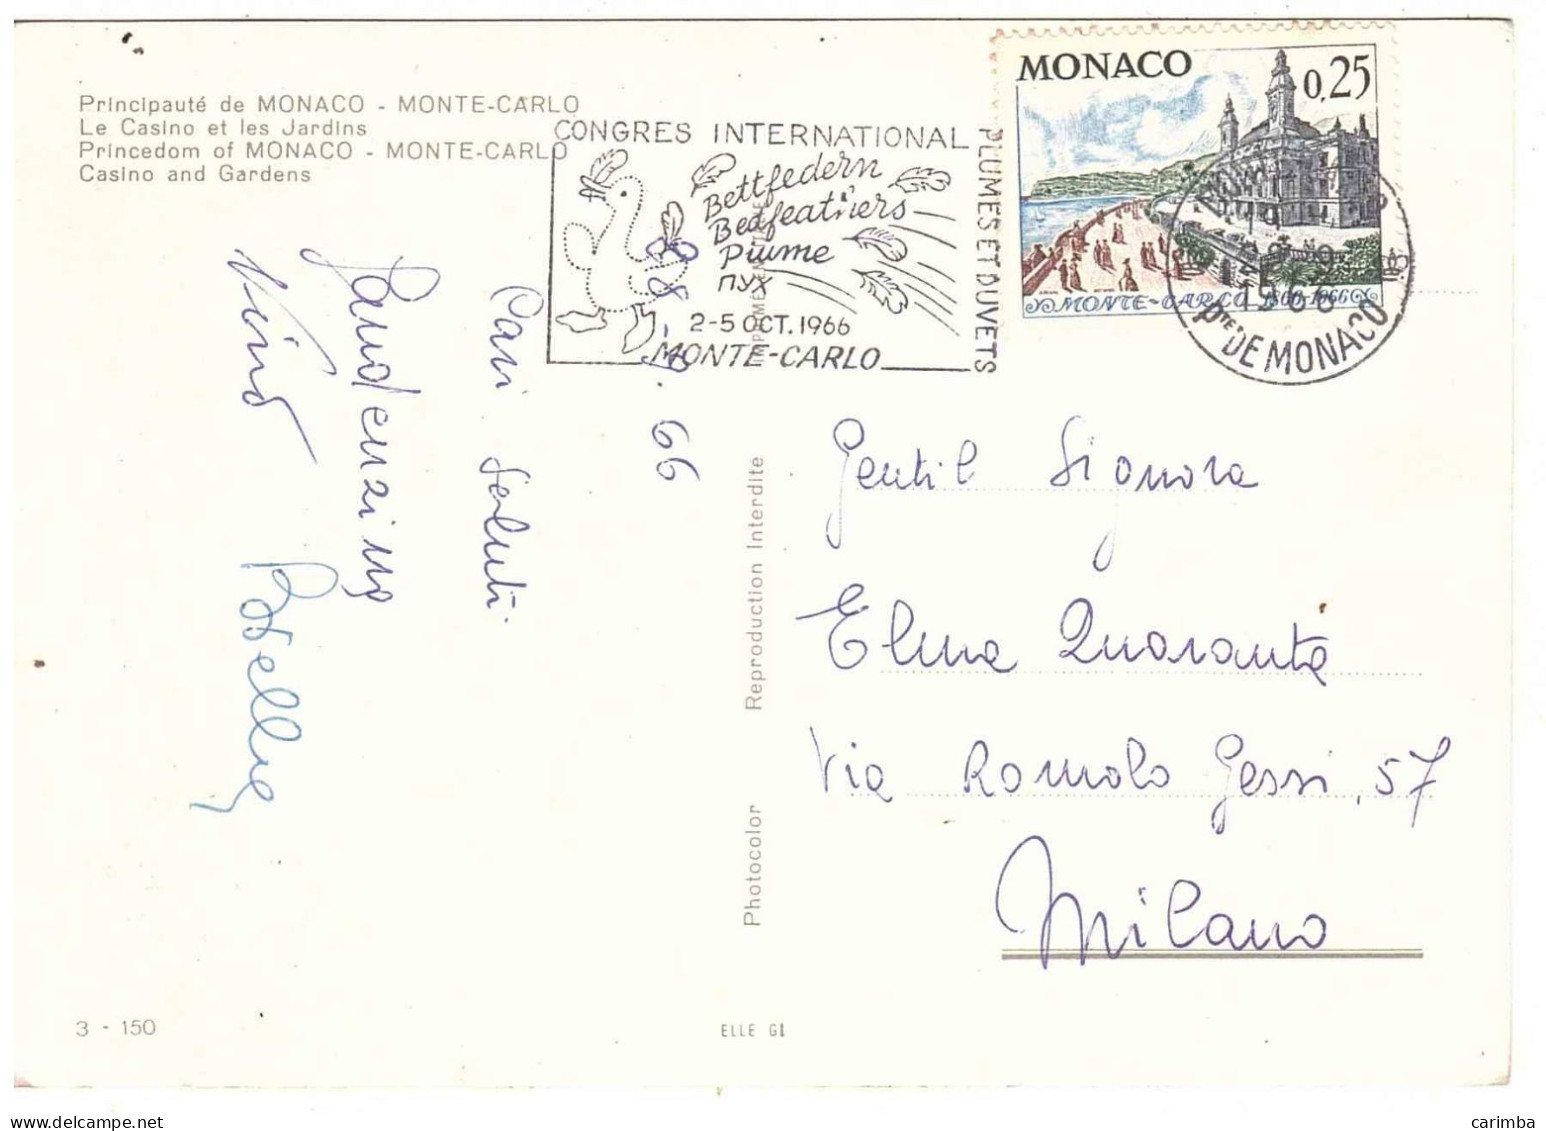 Principauté de MONACO - MONTE-CARLO
Le Casino et les Jardins
Princedom of MONACO - MONTE-CARLO
Casino and Gardens
CONGRES INTERNATIONAL
PLUMES ET DUVETS
Bettfedern
Bedfeathers
Piume
пух
2-5 OCT. 1966
MONTE-CARLO
MONACO
0,25
MONTE-CARLO 1866-1966
1966
Pte DE MONACO
66
Cari saluti
Nino
Gentil Signora
Elma Quaranta
Via Romolo Gessi, 57
Milano
Reproduction Interdite
Photocolor
3 - 150
ELLE GI
carimba